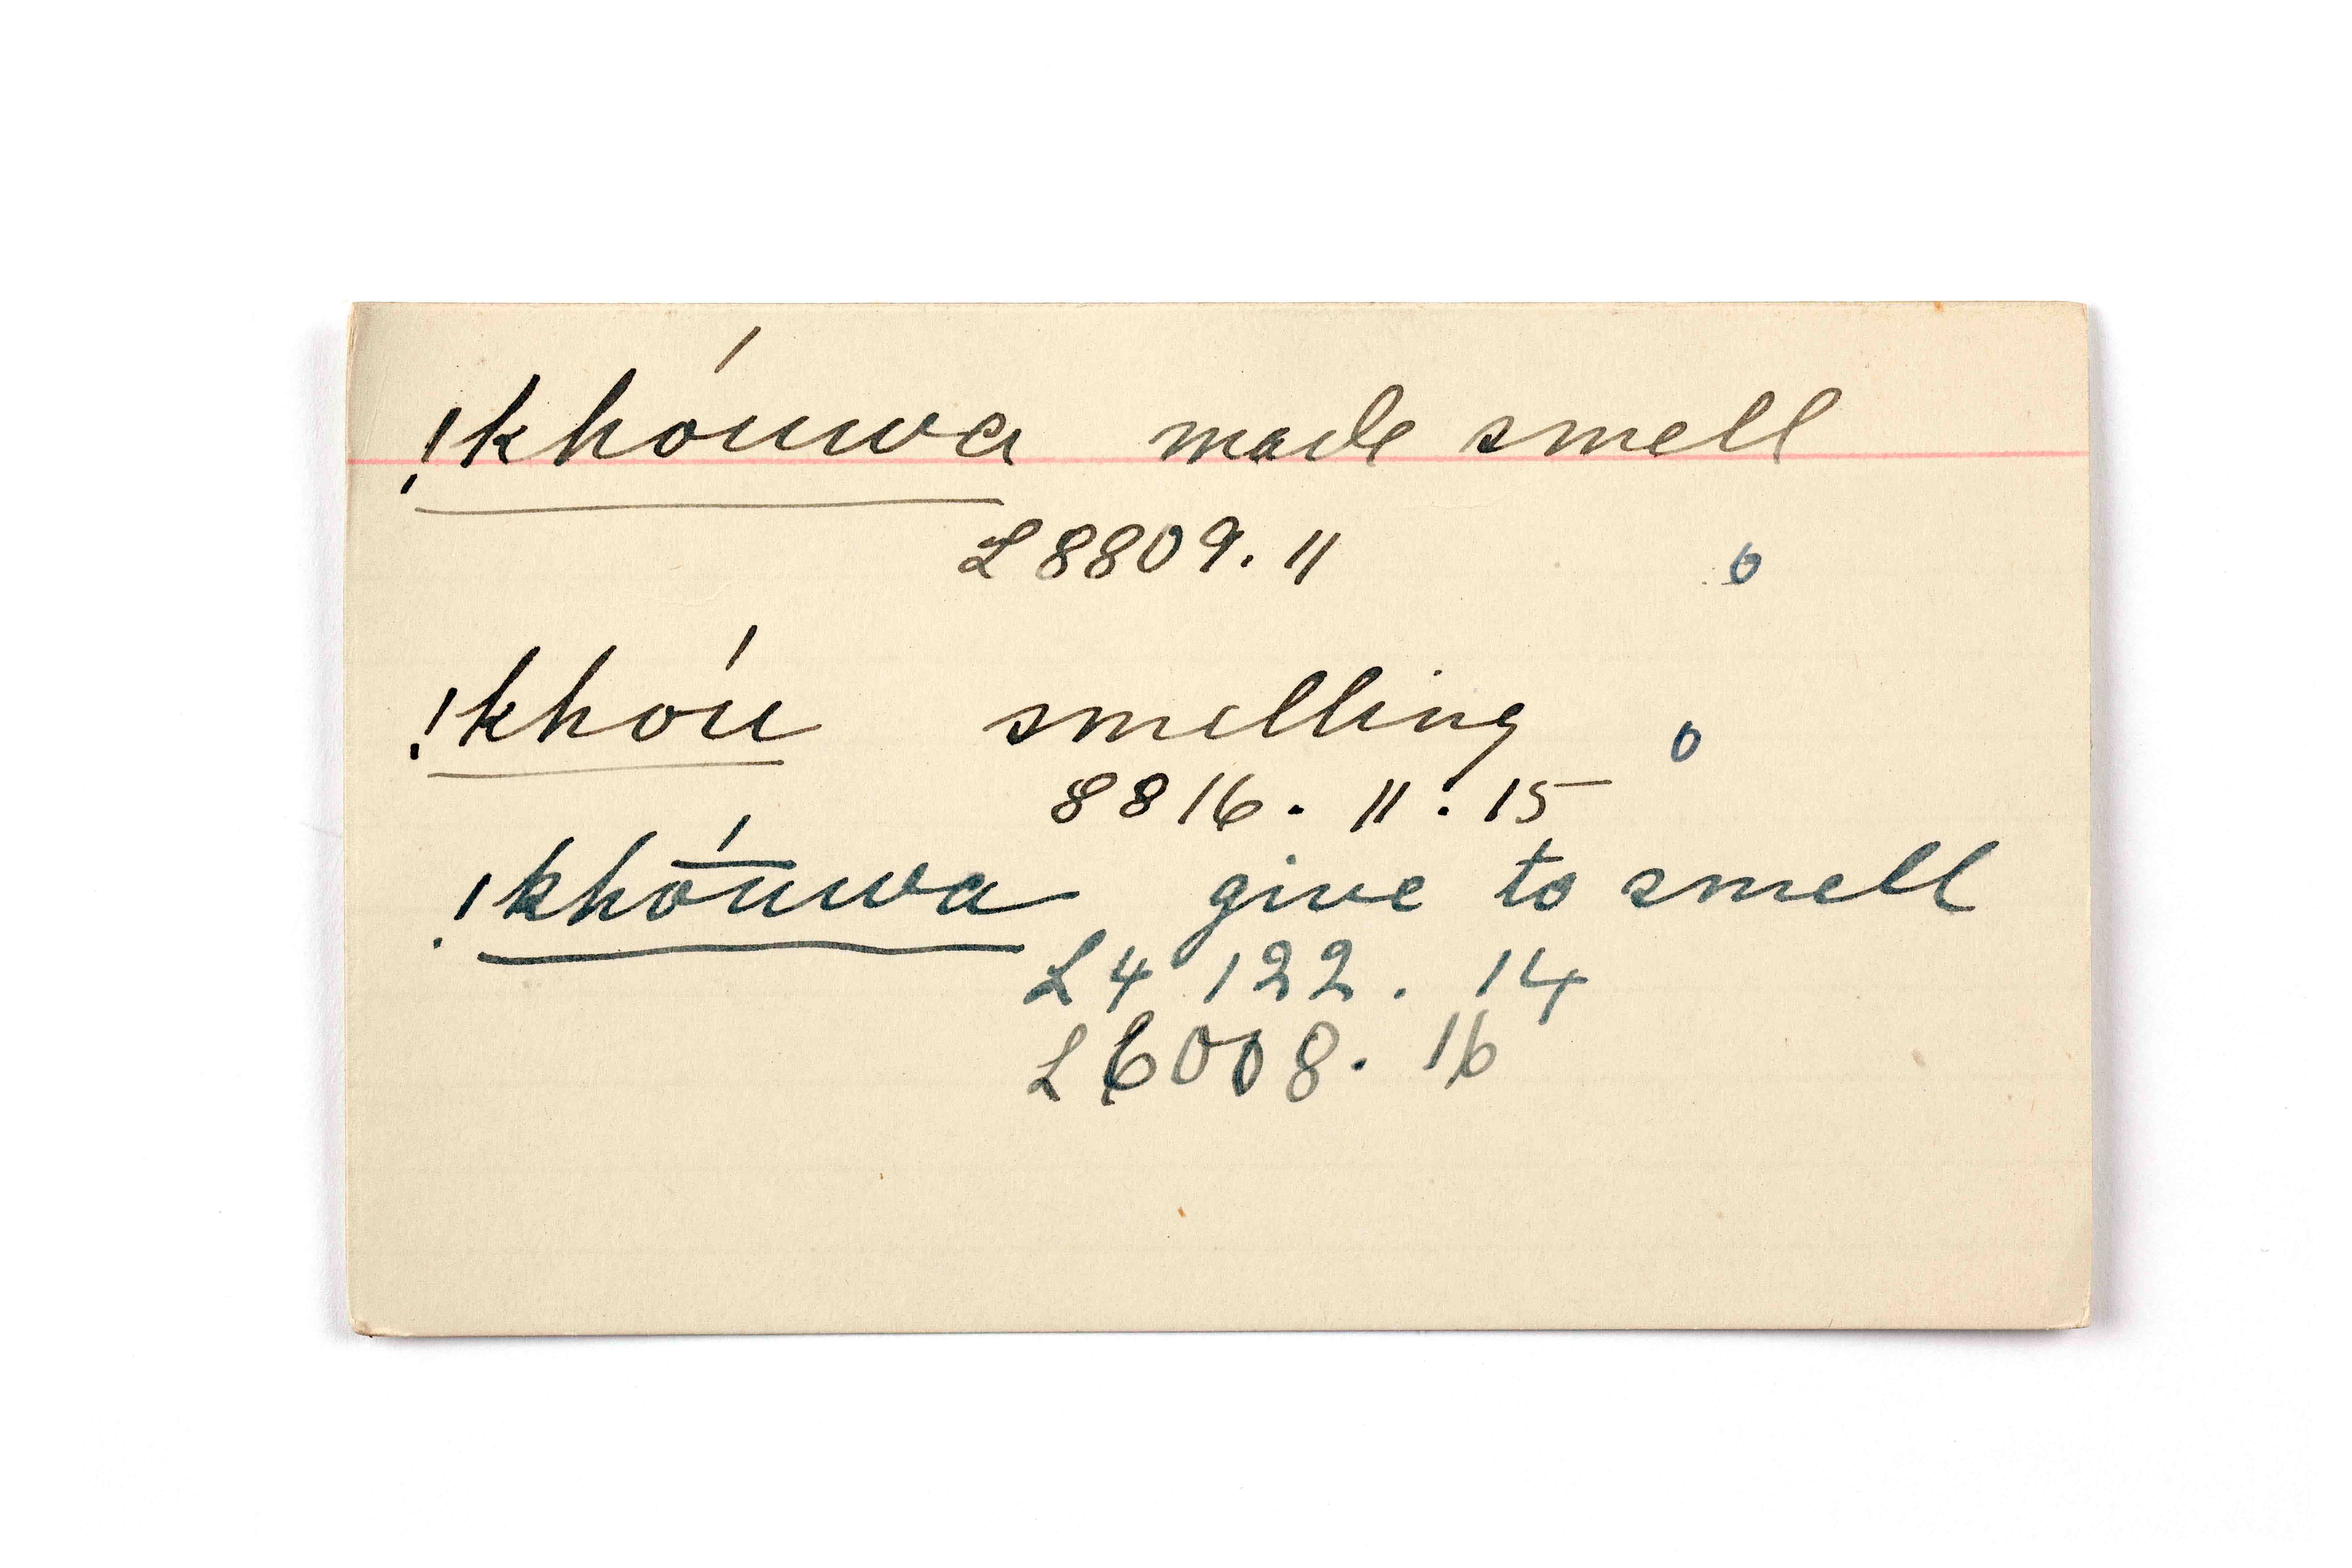 !khóuwa made smell
L 8809. 11 6
!khóu smelling 0
8816. 11. 15
!khṓūwa give to smell
L4 122. 14
L 6008. 16